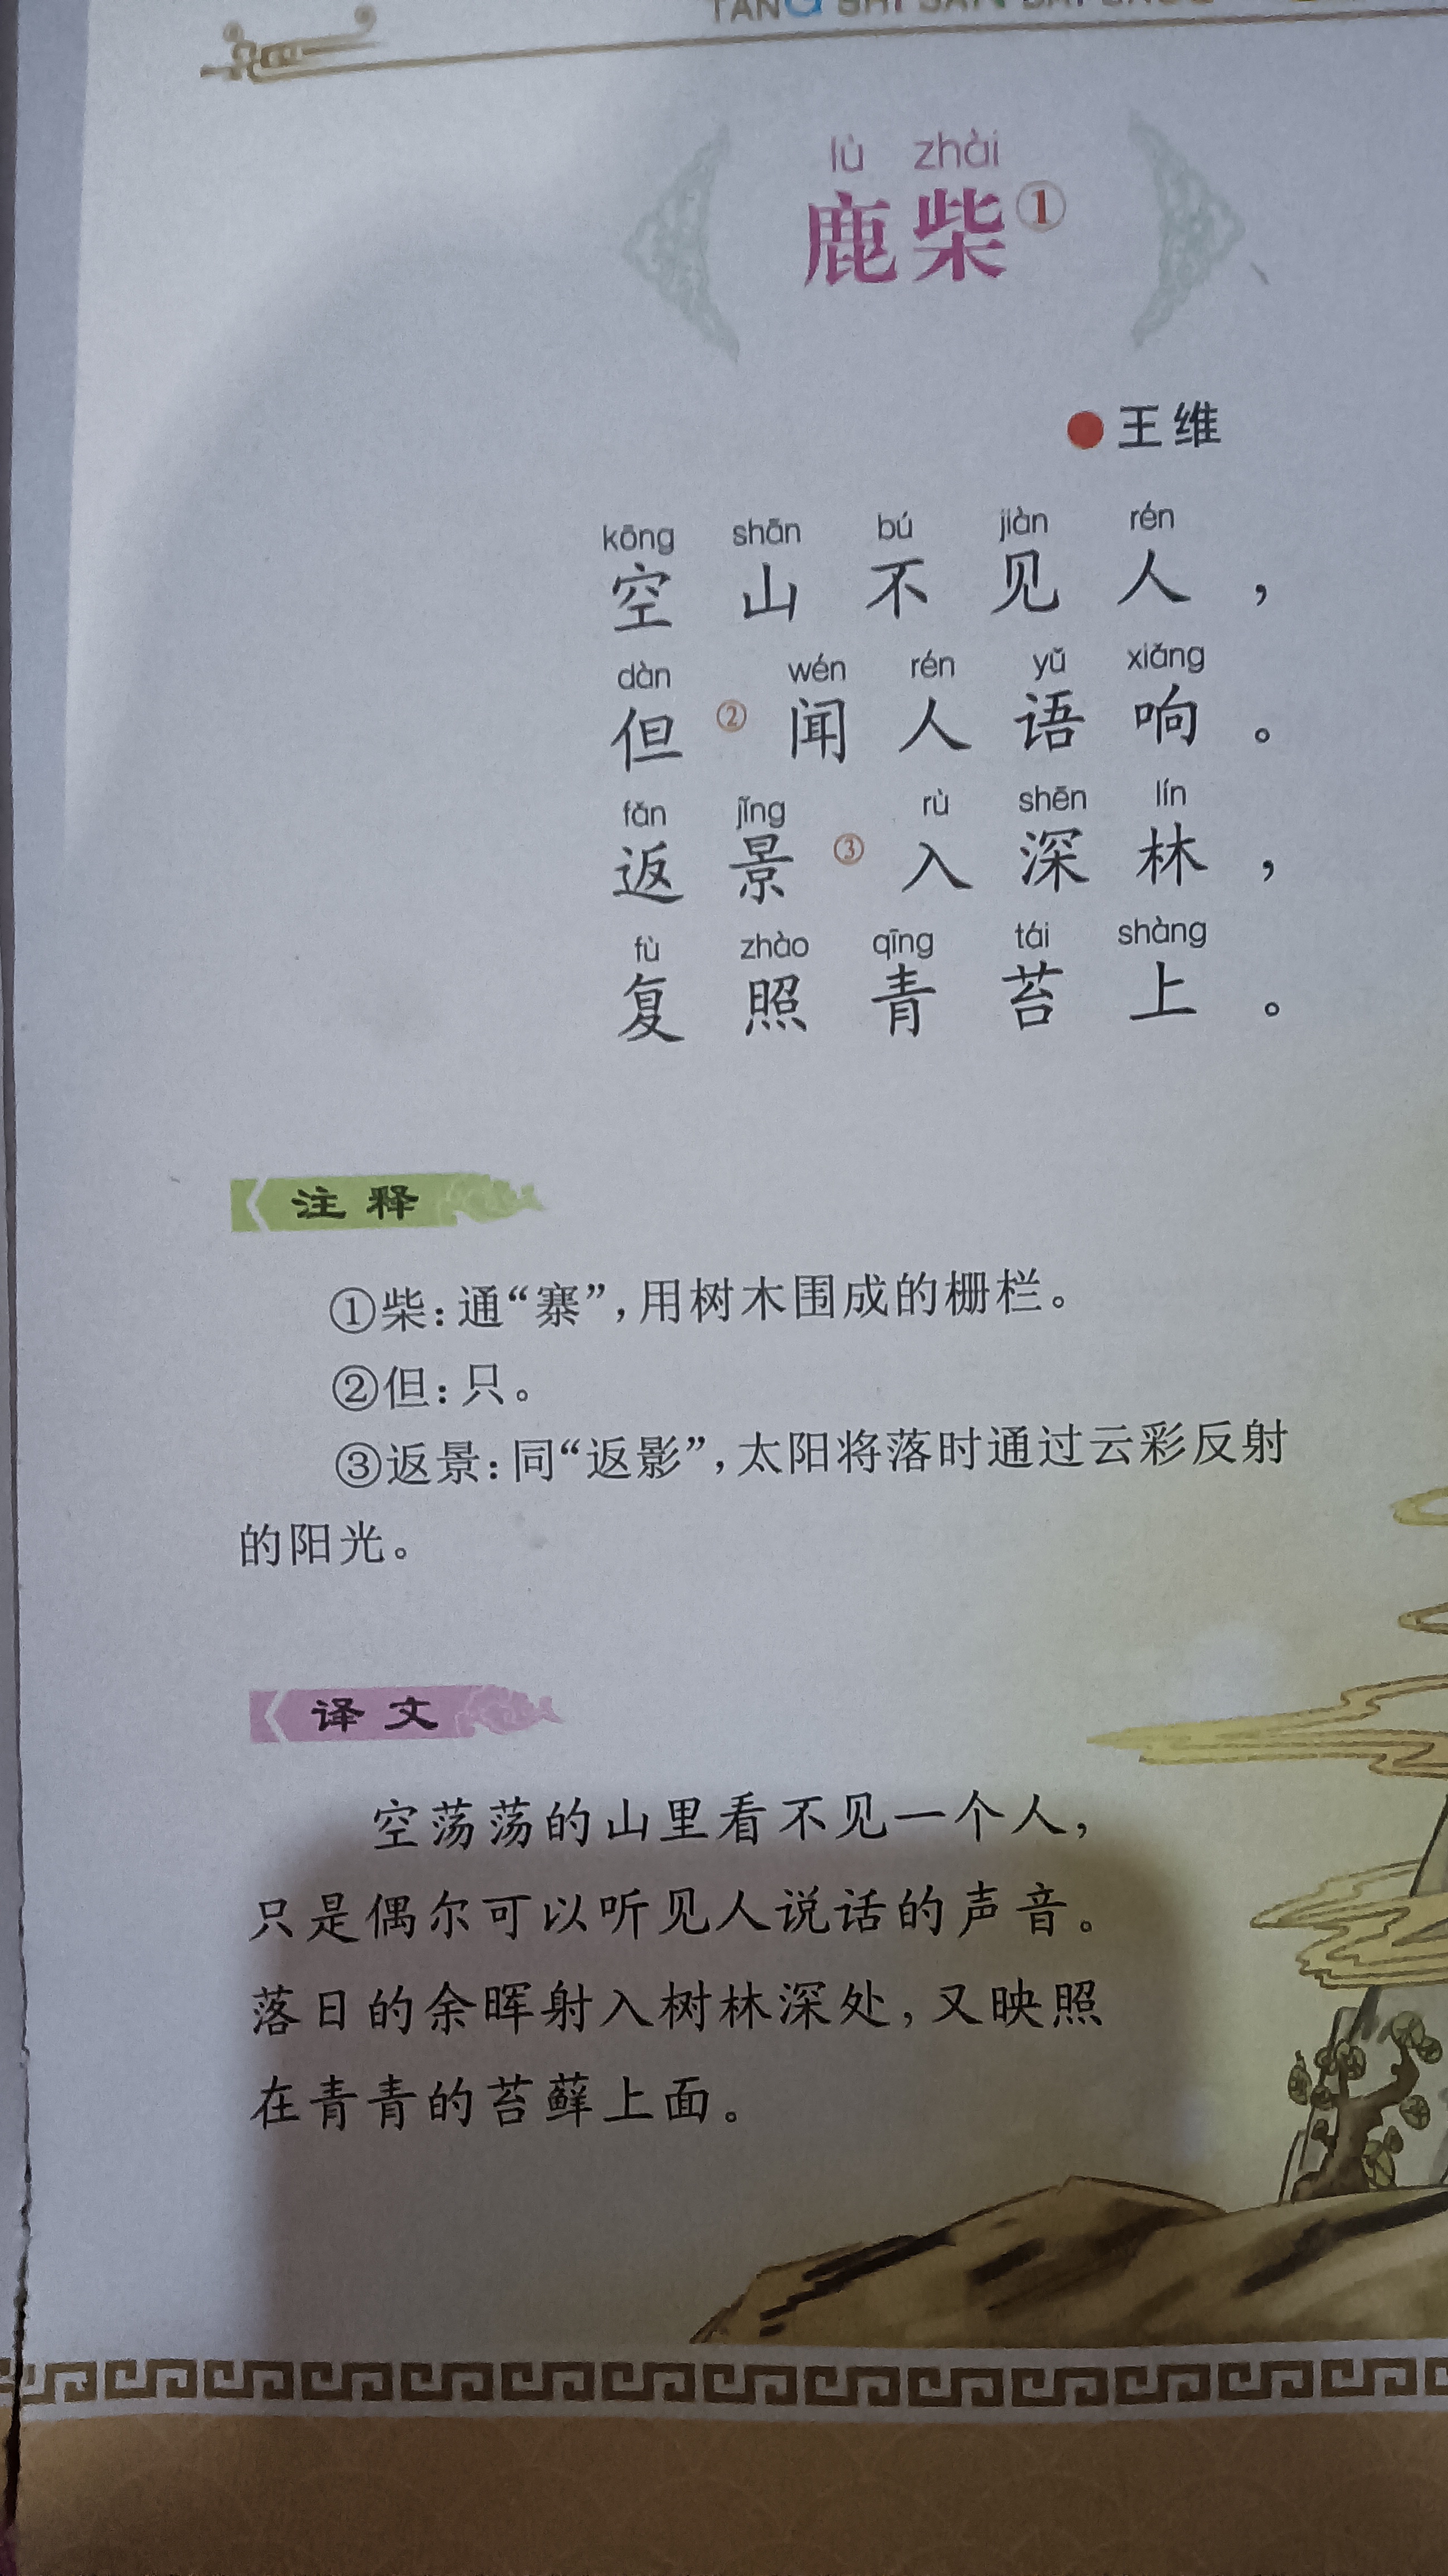 lù zhài
鹿柴①
●王维
kōng shān bú jiàn rén
空山不见人，
dàn wén rén yǔ xiǎng
但②闻人语响。
fǎn jǐng rù shēn lín
返景③入深林，
fù zhào qīng tái shàng
复照青苔上。
注释
①柴：通“寨”，用树木围成的栅栏。
②但：只。
③返景：同“返影”，太阳将落时通过云彩反射
的阳光。
译文
空荡荡的山里看不见一个人，
只是偶尔可以听见人说话的声音。
落日的余晖射入树林深处，又映照
在青青的苔藓上面。